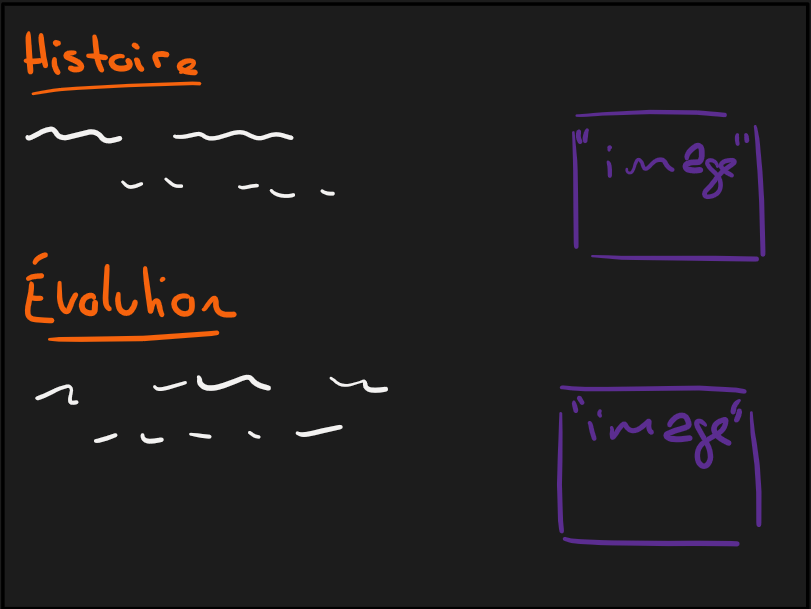 Histoire
"image"
Évolution
"image"